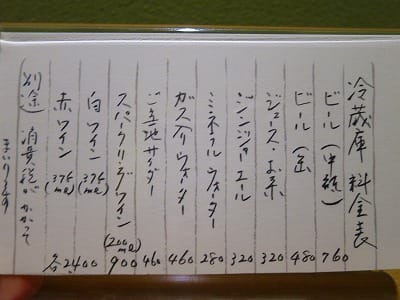 冷蔵庫 料金表
ビール(中瓶) 760
ビール(缶) 480
ジュース・お茶 320
ジンジャエール 320
ミネラルウォーター 280
ガス入りウォーター 460
ご当地サイダー 460
スパークリングワイン(200ml) 900
白ワイン(375ml)
赤ワイン(375ml) 各2400
(別途)消費税がかかって
まいります